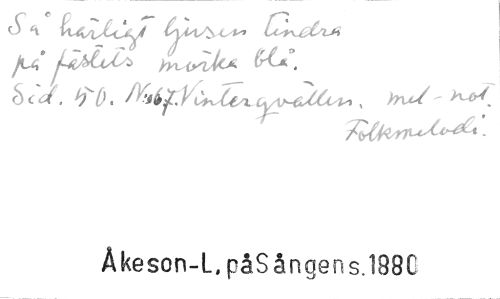 Så härligt ljusen tindra
på fästets mörka blå.
Sid. 50. N:o 67. Vinterqvällen. mel-not.
Folkmelodi.
Åkeson-L, påSångens.1880